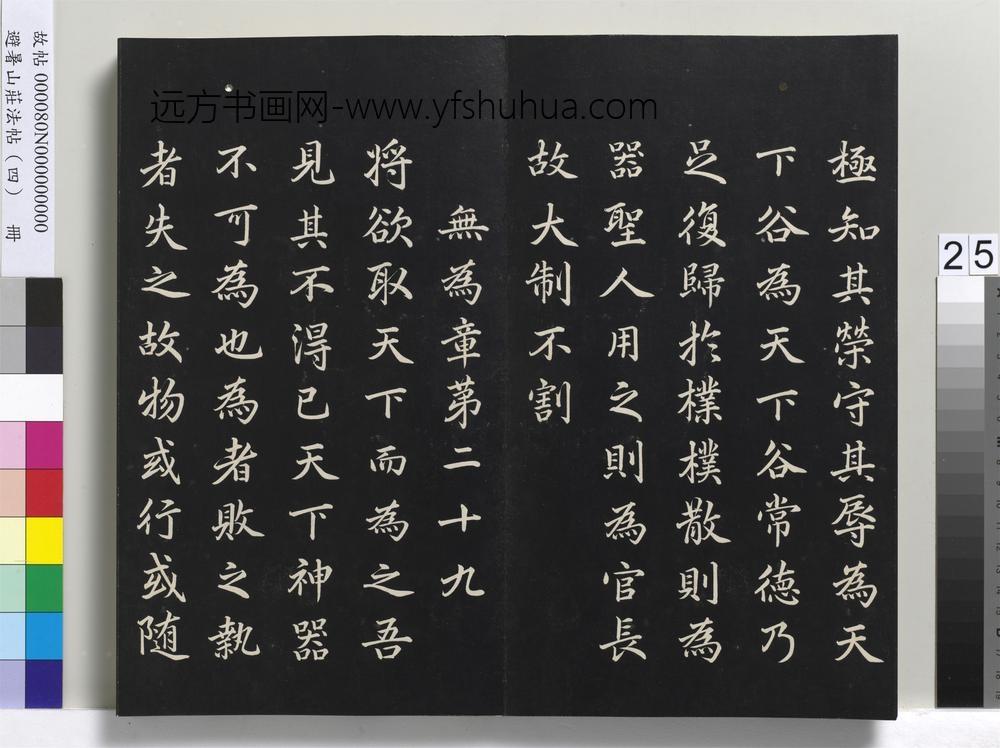 極知其榮守其辱為天
下谷為天下谷常德乃
足復歸於樸樸散則為
器聖人用之則為官長
故大制不割
無為章苐二十九
將欲取天下而為之吾
見其不淂已天下神器
不可為也為者敗之執
者失之故物或行或随
远方书画网-www.yfshuhua.com
故帖 000080N000000000
避暑山莊法帖（四） 冊
25